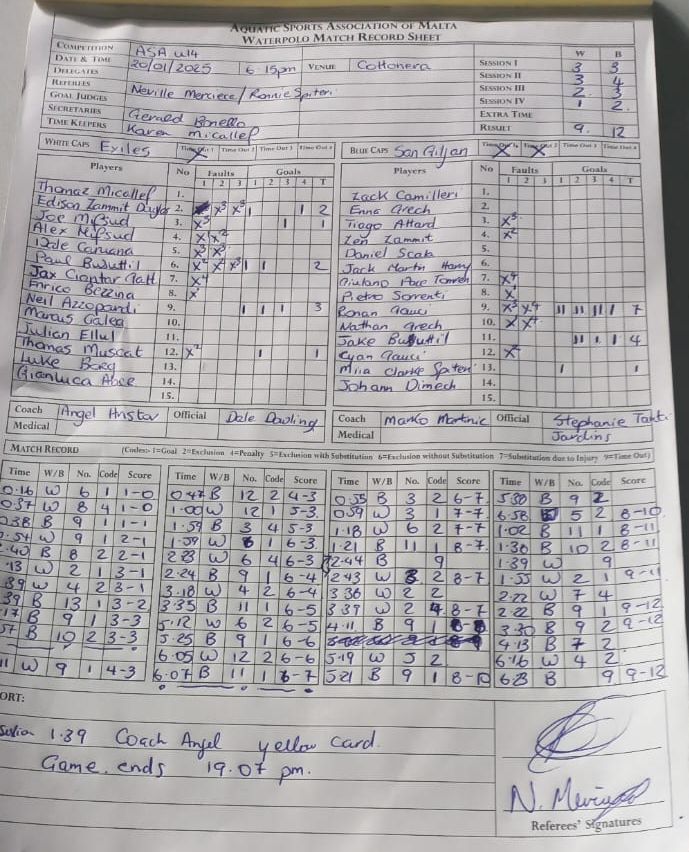 AQUATIC SPORTS ASSOCIATION OF MALTA
WATERPOLO MATCH RECORD SHEET
COMPETITION ASA u14
DATE & TIME 20/01/2025 6.15pm VENUE Cottonera
DELEGATES
REFEREES Neville Mercieca/Ronnie Spiteri
GOAL JUDGES
SECRETARIES Gerald Bonello
TIME KEEPERS Karen Micallef
W B
SESSION I 3 3
SESSION II 3 4
SESSION III 2 3
SESSION IV 1 2
EXTRA TIME
RESULT 9. 12
WHITE CAPS Exiles Time Out 1 X Time Out 2 Time Out 3 Time Out 4
Players No Faults Goals
1 2 3 1 2 3 4 T
Thomaz Micallef 1.
Edison Zammit 2. X³ X³ 1 2
Joe Mifsud 3. X³ 1 1
Alex Mifsud 4. X X²
Dale Caruana 5. X³ X³
Paul Busuttil 6. X² X X³ 1 1 2
Jax Ciantar Gatt 7. X⁴
Enrico Bezzina 8. X
Neil Azzopardi 9. 1 1 1 3
Marcus Galea 10.
Julian Ellul 11.
Thomas Muscat 12. X² 1 1
Luke Borg 13.
Gianluca 14.
15.
Coach Angel Hristov Official Dale Dowling
Medical
BLUE CAPS San Giljan Time Out 1 X Time Out 2 X Time Out 3 Time Out 4
Players No Faults Goals
1 2 3 1 2 3 4 T
Zack Camilleri 1.
Enna Grech 2.
Tiago Attard 3. X³
Zen Zammit 4. X²
Daniel Scala 5.
Jack Martin 6.
Giuliano Pace 7. X⁴
Pietro Sorrenti 8. X
Ronan Gauci 9. X³ X⁴ 11 11 11 1 7
Nathan Grech 10. X X⁴
Jake Busuttil 11. 11 1 1 4
Cyan Gauci 12. X²
Mila Clarke Spiteri 13. 1 1
Johann Dimech 14.
15.
Coach Marko Martinic Official Stephanie
Medical Jardins
MATCH RECORD (Codes:- 1=Goal 2=Exclusion 4=Penalty 5=Exclusion with Substitution 6=Exclusion without Substitution 7=Substitution due to Injury 9=Time Out)
Time W/B No. Code Score
0.16 W 6 1 1-0
0.37 W 8 4 1-0
0.38 B 9 1 1-1
0.54 W 9 1 2-1
.40 B 8 2 2-1
.13 W 2 1 3-1
.39 W 4 2 3-1
.39 B 13 1 3-2
.17 B 9 1 3-3
.57 B 10 2 3-3
11 W 9 1 4-3
Time W/B No. Code Score
0.47 B 12 2 4-3
1.00 W 12 1 5-3
1.59 B 3 4 5-3
1.59 W 6 1 6-3
2.23 W 6 4 6-3
2.24 B 9 1 6-4
3.18 W 4 2 6-4
3.35 B 11 1 6-5
5.12 W 6 2 6-5
5.25 B 9 1 6-6
6.05 W 12 2 6-6
6.07 B 11 1 6-7
Time W/B No. Code Score
0.55 B 3 2 6-7
0.59 W 3 1 7-7
1.18 W 6 2 7-7
1.21 B 11 1 8-7
2.44 B 9
2.43 W 8 2 8-7
3.36 W 2 2
3.39 W 2 4 8-7
4.11 B 9 1 8-8
5.19 W 5 2
5.21 B 9 1 8-10
Time W/B No. Code Score
5.30 B 9 2
6.58 5 2 8-10
1.02 B 11 1 8-11
1.30 B 10 2 8-11
1.39 W 9
1.55 W 2 1 9-11
2.22 W 7 4
2.22 B 9 1 9-12
3.30 B 9 2 9-12
4.13 B 7 2
6.16 W 4 2
6.23 B 9 9-12
ORT:
1.39 Coach Angel yellow card.
Game ends 19.07 pm.
Referees' Signatures